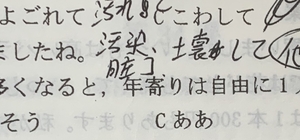 よごれて 汚れる こわして
ましたね。汚染、土壌 して 他
脏了
くなると、年寄りは自由に1
そう C ああ